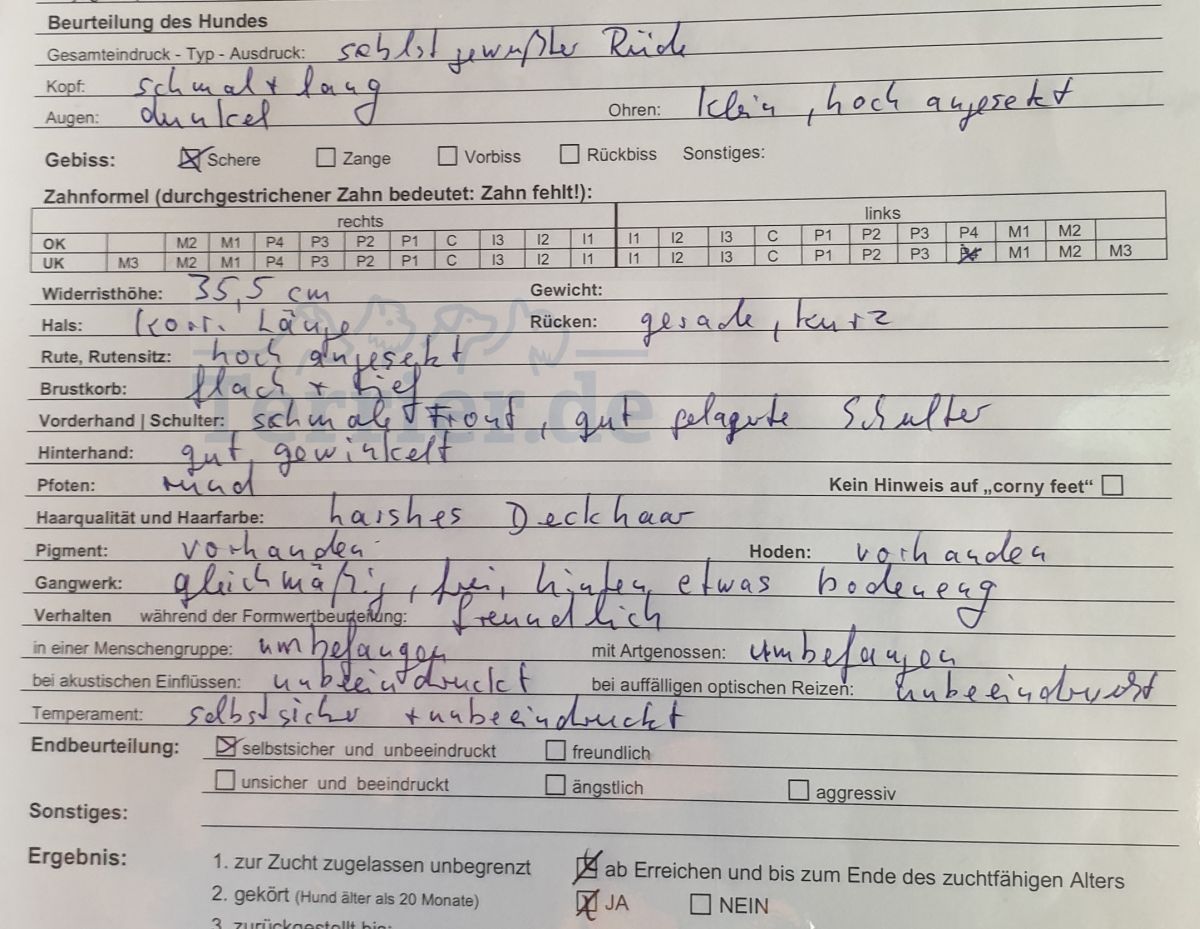 Beurteilung des Hundes
Gesamteindruck - Typ - Ausdruck: selbstgewußter Rüde
Kopf: schmal + lang
Augen: dunkel Ohren: klein, hoch angesetzt
Gebiss: ☒ Schere ☐ Zange ☐ Vorbiss ☐ Rückbiss Sonstiges:
Zahnformel (durchgestrichener Zahn bedeutet: Zahn fehlt!):
rechts links
OK M2 M1 P4 P3 P2 P1 C I3 I2 I1 I1 I2 I3 C P1 P2 P3 P4 M1 M2
UK M3 M2 M1 P4 P3 P2 P1 C I3 I2 I1 I1 I2 I3 C P1 P2 P3 P4 M1 M2 M3
Widerristhöhe: 35,5 cm Gewicht:
Hals: korr. Länge Rücken: gerade, kurz
Rute, Rutensitz: hoch angesetzt
Brustkorb: flach + tief
Terrier.de
Vorderhand | Schulter: schmale Front, gut gelagerte Schulter
Hinterhand: gut gewinkelt
Pfoten: rund Kein Hinweis auf „corny feet“ ☐
Haarqualität und Haarfarbe: harshes Deckhaar
Pigment: vorhanden Hoden: vorhanden
Gangwerk: gleichmäßig, frei, hinten etwas bodeneng
Verhalten während der Formwertbeurteilung: freundlich
in einer Menschengruppe: unbefangen mit Artgenossen: unbefangen
bei akustischen Einflüssen: unbeeindruckt bei auffälligen optischen Reizen: unbeeindruckt
Temperament: selbstsicher + unbeeindruckt
Endbeurteilung: ☒ selbstsicher und unbeeindruckt ☐ freundlich
☐ unsicher und beeindruckt ☐ ängstlich ☐ aggressiv
Sonstiges:
Ergebnis: 1. zur Zucht zugelassen unbegrenzt ☒ ab Erreichen und bis zum Ende des zuchtfähigen Alters
2. gekört (Hund älter als 20 Monate) ☒ JA ☐ NEIN
3. zurückgestellt bis: